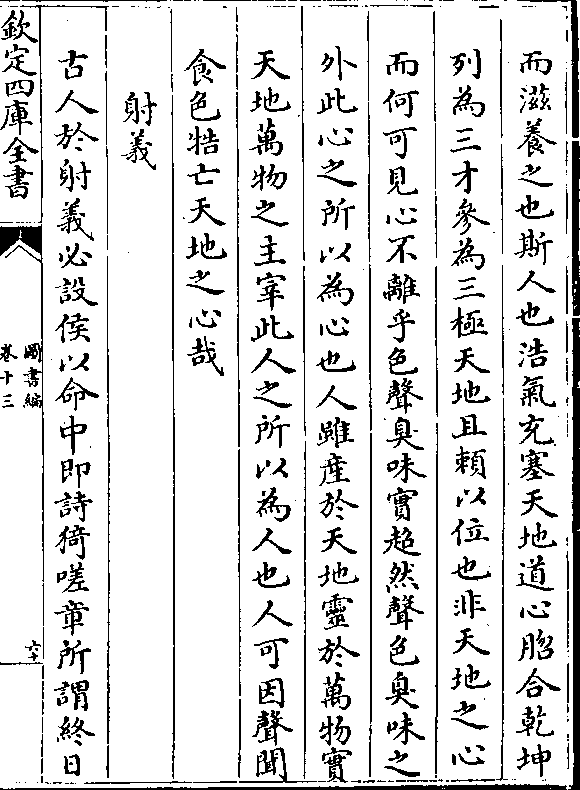 而滋養之也斯人也浩氣充塞天地道心脗合乾坤
列為三才參為三極天地且賴以位也非天地之心
而何可見心不離乎色聲臭味實超然聲色臭味之
外此心之所以為心也人雖産於天地靈於萬物實
天地萬物之主宰此人之所以為人也人可因聲聞
食色牿亡天地之心哉
射義
古人於射義必設侯以命中即詩猗嗟章所謂終日
欽定四庫全書
圖書編
卷十三
六十